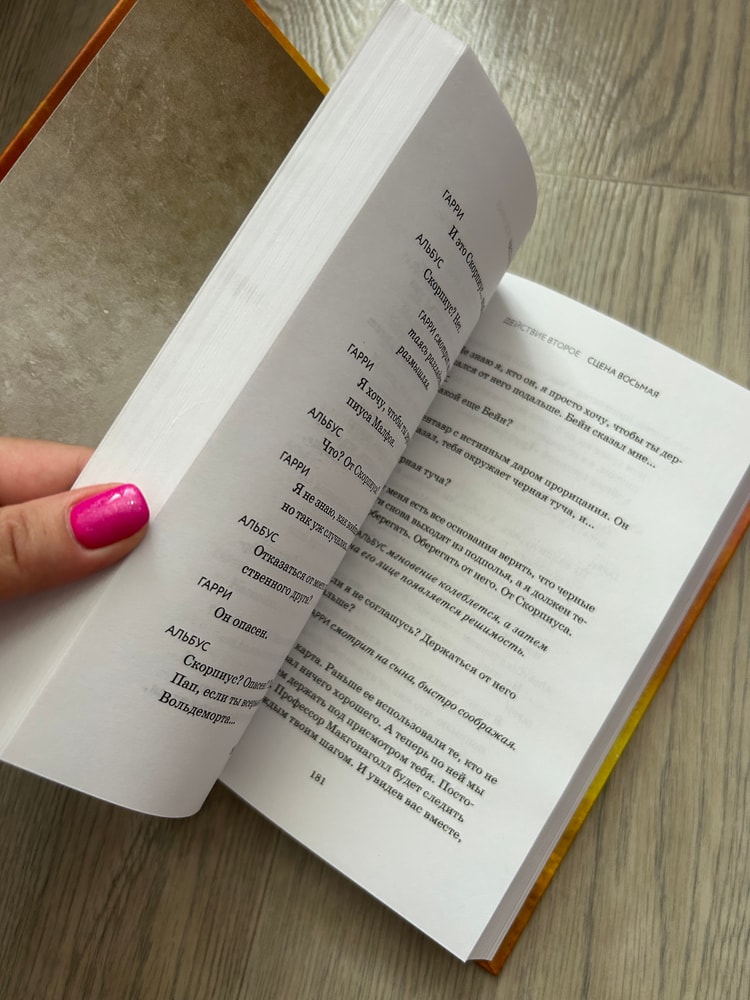 ГАРРИ
И это Скорпиус...
АЛЬБУС
Скорпиус? Нет.
ГАРРИ смотрит
таясь разгад
размышляя
ГАРРИ
Я хочу, чтобы ты
пиуса Малфоя.
АЛЬБУС
Что? От Скорпиуса
ГАРРИ
Я не знаю, как
но так уж случилос
АЛЬБУС
Отказаться от
ственного друга?
ГАРРИ
Он опасен.
АЛЬБУС
Скорпиус? Опасен
Пап, если ты
Вольдеморта...
ДЕЙСТВИЕ ВТОРОЕ СЦЕНА ВОСЬМАЯ
не знаю я, кто он, я просто хочу, чтобы ты дер-
жался от него подальше. Бейн сказал мне...
акой еще Бейн?
ентавр с истинным даром прорицания. Он
казал, тебя окружает черная туча, и...
ерная туча?
меня есть все основания верить, что черные
ти снова выходят из подполья, а я должен те-
оберегать. Оберегать от него. От Скорпиуса.
АЛЬБУС мгновение колеблется, а затем
на его лице появляется решимость.
ли я не соглашусь? Держаться от него
альше?
ГАРРИ смотрит на сына, быстро соображая.
карта. Раньше ее использовали те, кто не
ал ничего хорошего. А теперь по ней мы
ем держать под присмотром тебя. Посто-
Профессор Макгонаголл будет следить
ждым твоим шагом. И увидев вас вместе,
181